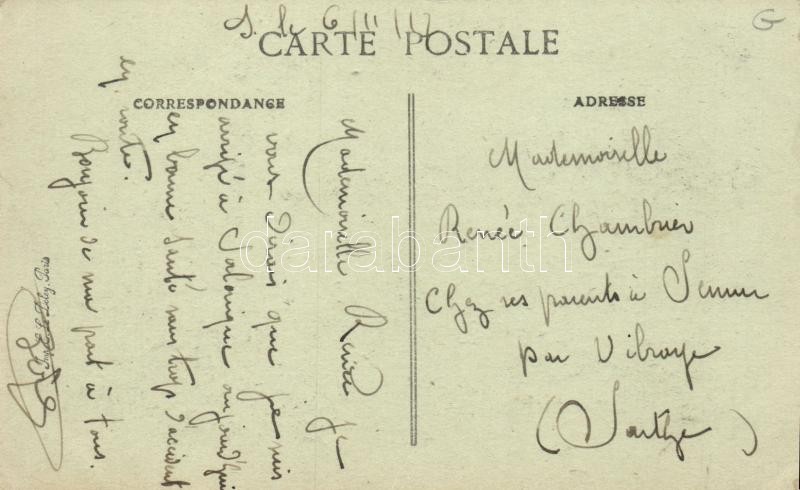 S. le 6/11/17
CARTE POSTALE
CORRESPONDANCE
ADRESSE
Mademoiselle Renée je
vous dirais que je suis
arrivé à Salonique aujourd'hui
en bonne santé sans trop d'accident
en route.
Bonjour de ma part à tous.
Mademoiselle
Renée Chambrier
Chez ses parents à Semur
par Vibraye
(Sarthe)
Paris
G
darabanth